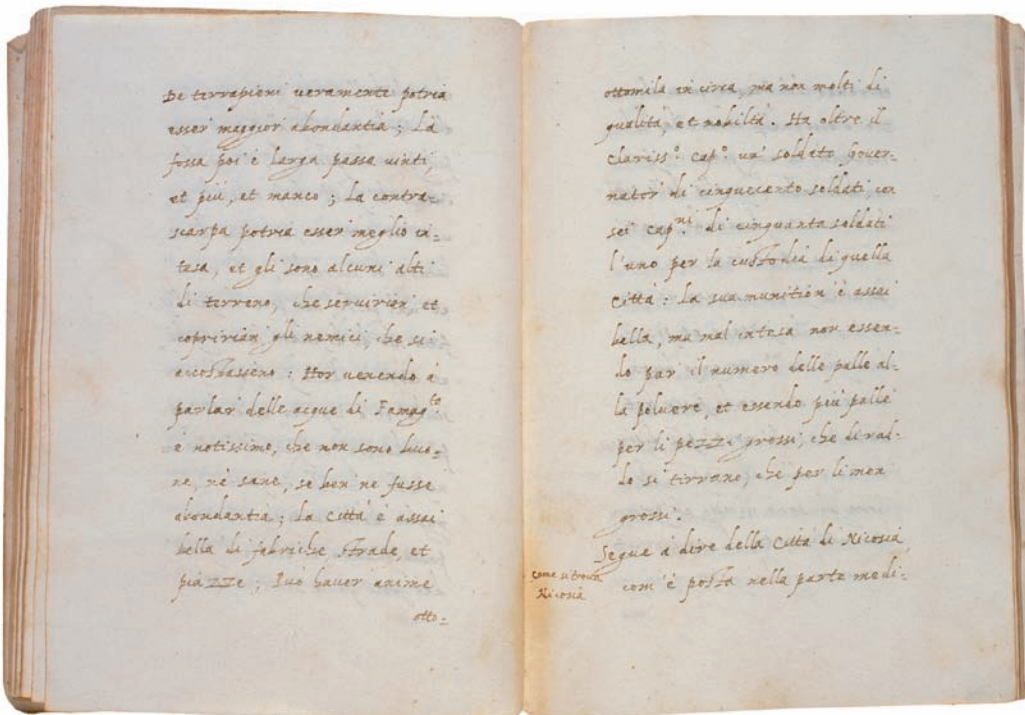 De terrapieni veramente potria
esser maggior abondantia; La
fossa poi è larga passa vinti,
et più, et manco; La contra-
scarpa potria esser meglio in-
tesa, et gli sono alcuni alti
di terreno, che serviriàn, et
copririàn gli nemici, che si
accostasseno: Hor venendo à
parlar delle acque di Famag.ta
è notissimo, che non sono buo-
ne, nè sane, se ben ne fusse
abondantia; La Città è assai
bella di fabriche strade, et
piazze; Può haver anime
otto-
ottomila in circa, ma non molti di
qualità, et nobiltà. Ha oltre il
Clariss.o Cap.o un' soldato Gover-
nator di cinquecento soldati con
sei cap.ni di cinquanta soldati
l'uno per la custodia di quella
Città: La sua munition è assai
bella, ma mal intesa non essen-
do par il numero delle palle al-
la polvere, et essendo più palle
per li pezzi grossi, che di rad-
do si tirrano, che per li men
grossi.
Segue à dire della Città di Nicosia
come si trova
Nicosia
com' è posta nella parte medi-